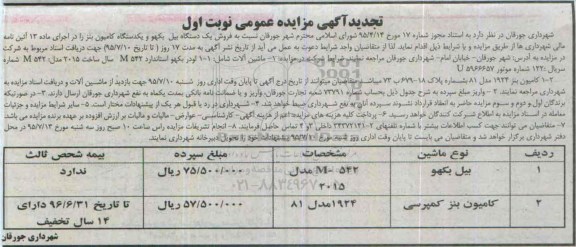 تجدید آگهی مزایده عمومی نوبت اول
شهرداری جورقان در نظر دارد به استناد مجوز شماره ۱۷ مورخ ۹۵/۴/۱۳ شورای اسلامی محترم شهر جورقان نسبت به فروش یک دستگاه بیل بکهو و یکدستگاه کامیون بنز را در اجرای ماده ۱۳ آئین نامه
مالی شهرداری ها از طریق مزایده و با شرایط ذیل اقدام نماید. لذا از متقاضیان واجد شرایط دعوت به عمل می آید از تاریخ نشر آگهی به مدت ۱۷ روز ( تا تاریخ ۹۵/۷/۱۰) جهت دریافت اسناد مربوط به شرکت
در مزایده به آدرس: شهر جورقان– خیابان امام– شهرداری جورقان مراجعه نمایند. شرایط شرکت در مزایده: ماشین آلات شامل: ۱-۱ لودر بکهو استاندارد M ۵۴۲ سال ساخت ۲۰۱۵ مدل: M ۵۴۲ شماره
سریال: ۱۲۲۰ شماره موتور
۲-۱ کامیون بنز ۱۹۲۴ مدل ۸۱ شماره پلاک ۱۸-۶۷۹ متقاضیان میتوانند از تاریخ درج آگهی تا پایان وقت اداری روز شنبه ۹۵/۷/۱۰ جهت بازدید از ماشین آلات و دریافت اسناد مزایده به
شهرداری مراجعه نمایند. ۲- واریز مبلغ سپرده به شرح جدول ذیل بحساب شماره ۳۳۲۹۱ شعبه تجارت جورقان، واریز و یا ضمانت نامه بانکی بمدت یکماه به نفع شهرداری جورقان ارسال دارند. ۳- در صورتیکه
برندگان اول و دوم و سوم مزایده حاضر به انعقاد قرارداد نشوند سپرده آنان به نفع شهرداری ضبط خواهد شد. ۴- شهرداری در رد یا قبول هر یک از پیشنهادات مختار است. ۵- سایر شرایط مزایده و جزئیات
معامله در اسناد مزایده به اطلاع شرکت کنندگان خواهد رسید. ۶- پرداخت کلیه هزینه های مزایده اعم از هزینه آگهی– کارشناسی– عوارض– مالیات و مالیات بر ارزش افزوده بر عهده برنده مزایده می باشد.
۷- متقاضیان می توانند جهت کسب اطلاعات بیشتر با شماره تلفنهای داخلی تماس حاصل فرمایند. ۸- انجام تشریفات مزایده راس ساعت ۱۰ صبح روز سه شنبه مورخ ۹۵/۷/۱۳ در محل
دفتر شهرداری برگزار خواهد شد و متقاضیان می بایست تا پایان وقت اداری روز تحویل دبیرخانه شهرداری نمایند.
ردیف نوع ماشین مشخصات مبلغ سپرده بیمه شخص ثالث
۱ بیل بکهو M- ۵۴۲ مدل ۲۰۱۵ ۷۵/۵۰۰/۰۰۰ ریال ندارد
۲ کامیون بنز کمپرسی ۱۹۲۴ مدل ۸۱ ۵۷/۵۰۰/۰۰۰ ریال تا تاریخ ۹۶/۶/۳۱ دارای ۱۴ سال تخفیف
شهرداری جورقان
۰۲۱-۸۸۳۴۹۶۷۰